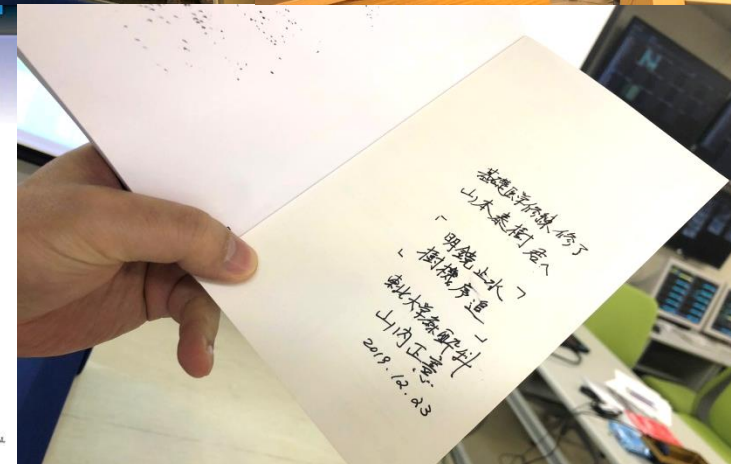 基礎医学修練修了
山本泰樹君へ
「明鏡止水」
「樹機応追」
東北大学麻酔科
山内正憲
2019.12.23